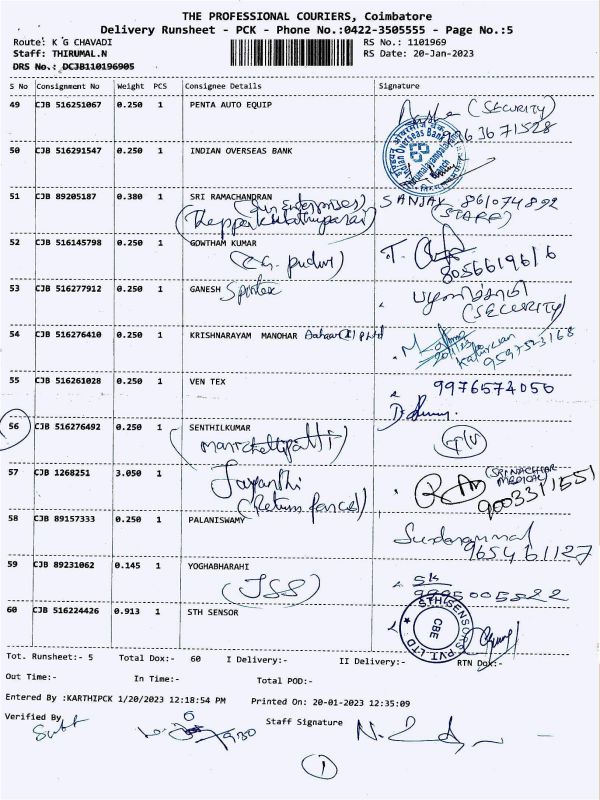 THE PROFESSIONAL COURIERS, Coimbatore
Delivery Runsheet - PCK - Phone No.:0422-3505555 - Page No.:5
Route: K G CHAVADI RS No.: 1101969
Staff: THIRUMAL.N RS Date: 20-Jan-2023
DRS No.: DCJB110196905
S No Consignment No Weight PCS Consignee Details Signature
49 CJB 516251067 0.250 1 PENTA AUTO EQUIP (SECURITY)
50 CJB 516291547 0.250 1 INDIAN OVERSEAS BANK
Indian Overseas Bank
51 CJB 89205187 0.380 1 SRI RAMACHANDRAN SANJAY 861074892
(STAFF)
52 CJB 516145798 0.250 1 GOWTHAM KUMAR
(K.G. pudur) 8056619616
53 CJB 516277912 0.250 1 GANESH Spintex
(SECURITY)
54 CJB 516276410 0.250 1 KRISHNARAYAM MANOHAR
9597523168
55 CJB 516261028 0.250 1 VEN TEX 9976574050
56 CJB 516276492 0.250 1 SENTHILKUMAR
(mavichettipatti)
57 CJB 1268251 3.050 1 Jayanthi (SRI NACHIAR MEDICAL)
(Return Parcel) 9003311551
58 CJB 89157333 0.250 1 PALANISWAMY
965461127
59 CJB 89231062 0.145 1 YOGHABHARAHI
(JSS) 9995005822
60 CJB 516224426 0.913 1 STH SENSOR
STH SENSORS PVT. LTD CBE
Tot. Runsheet:- 5 Total Dox:- 60 I Delivery:- II Delivery:- RTN Dox:-
Out Time:- In Time:- Total POD:-
Entered By :KARTHIPCK 1/20/2023 12:18:54 PM Printed On: 20-01-2023 12:35:09
Verified By Staff Signature
1